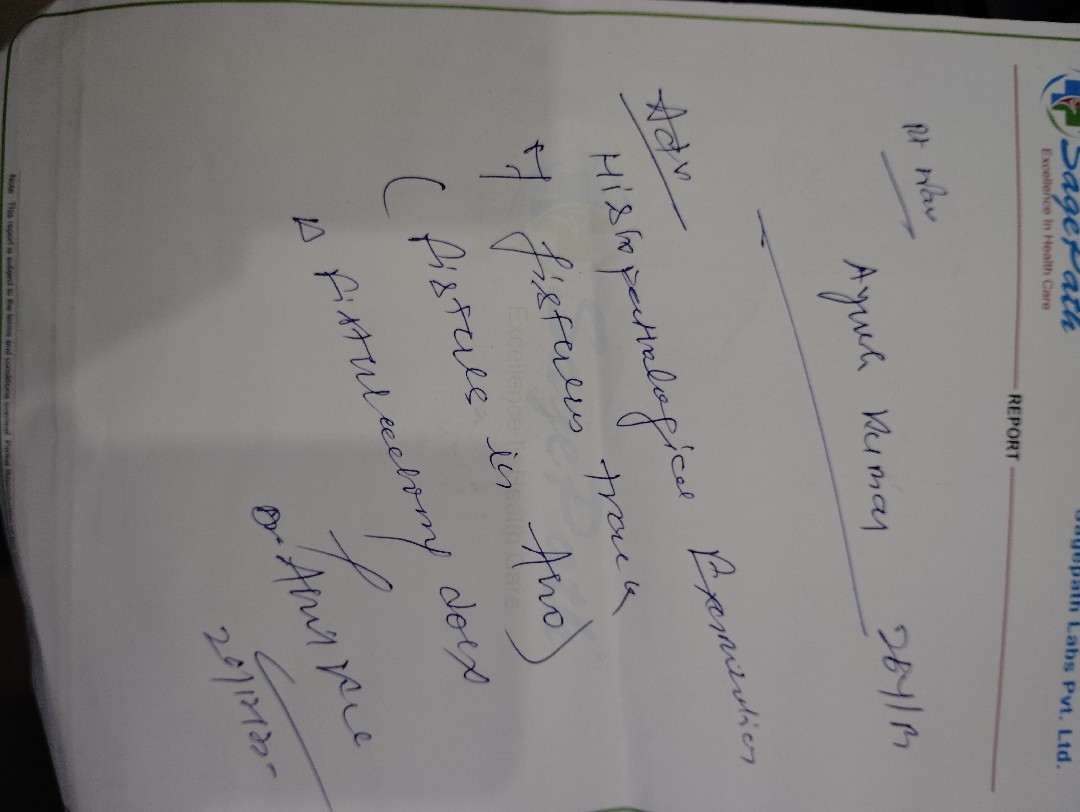 SagePath
Excellence In Health Care
Sagepath Labs Pvt. Ltd.
REPORT
Pt Nav
Ayush Kumar 28Y/M
Adv
Histopathological Examination
of fistulous track
( fistula in Ano)
Δ fistulectomy done
Dr Anil
Note : This report is subject to the terms and conditions